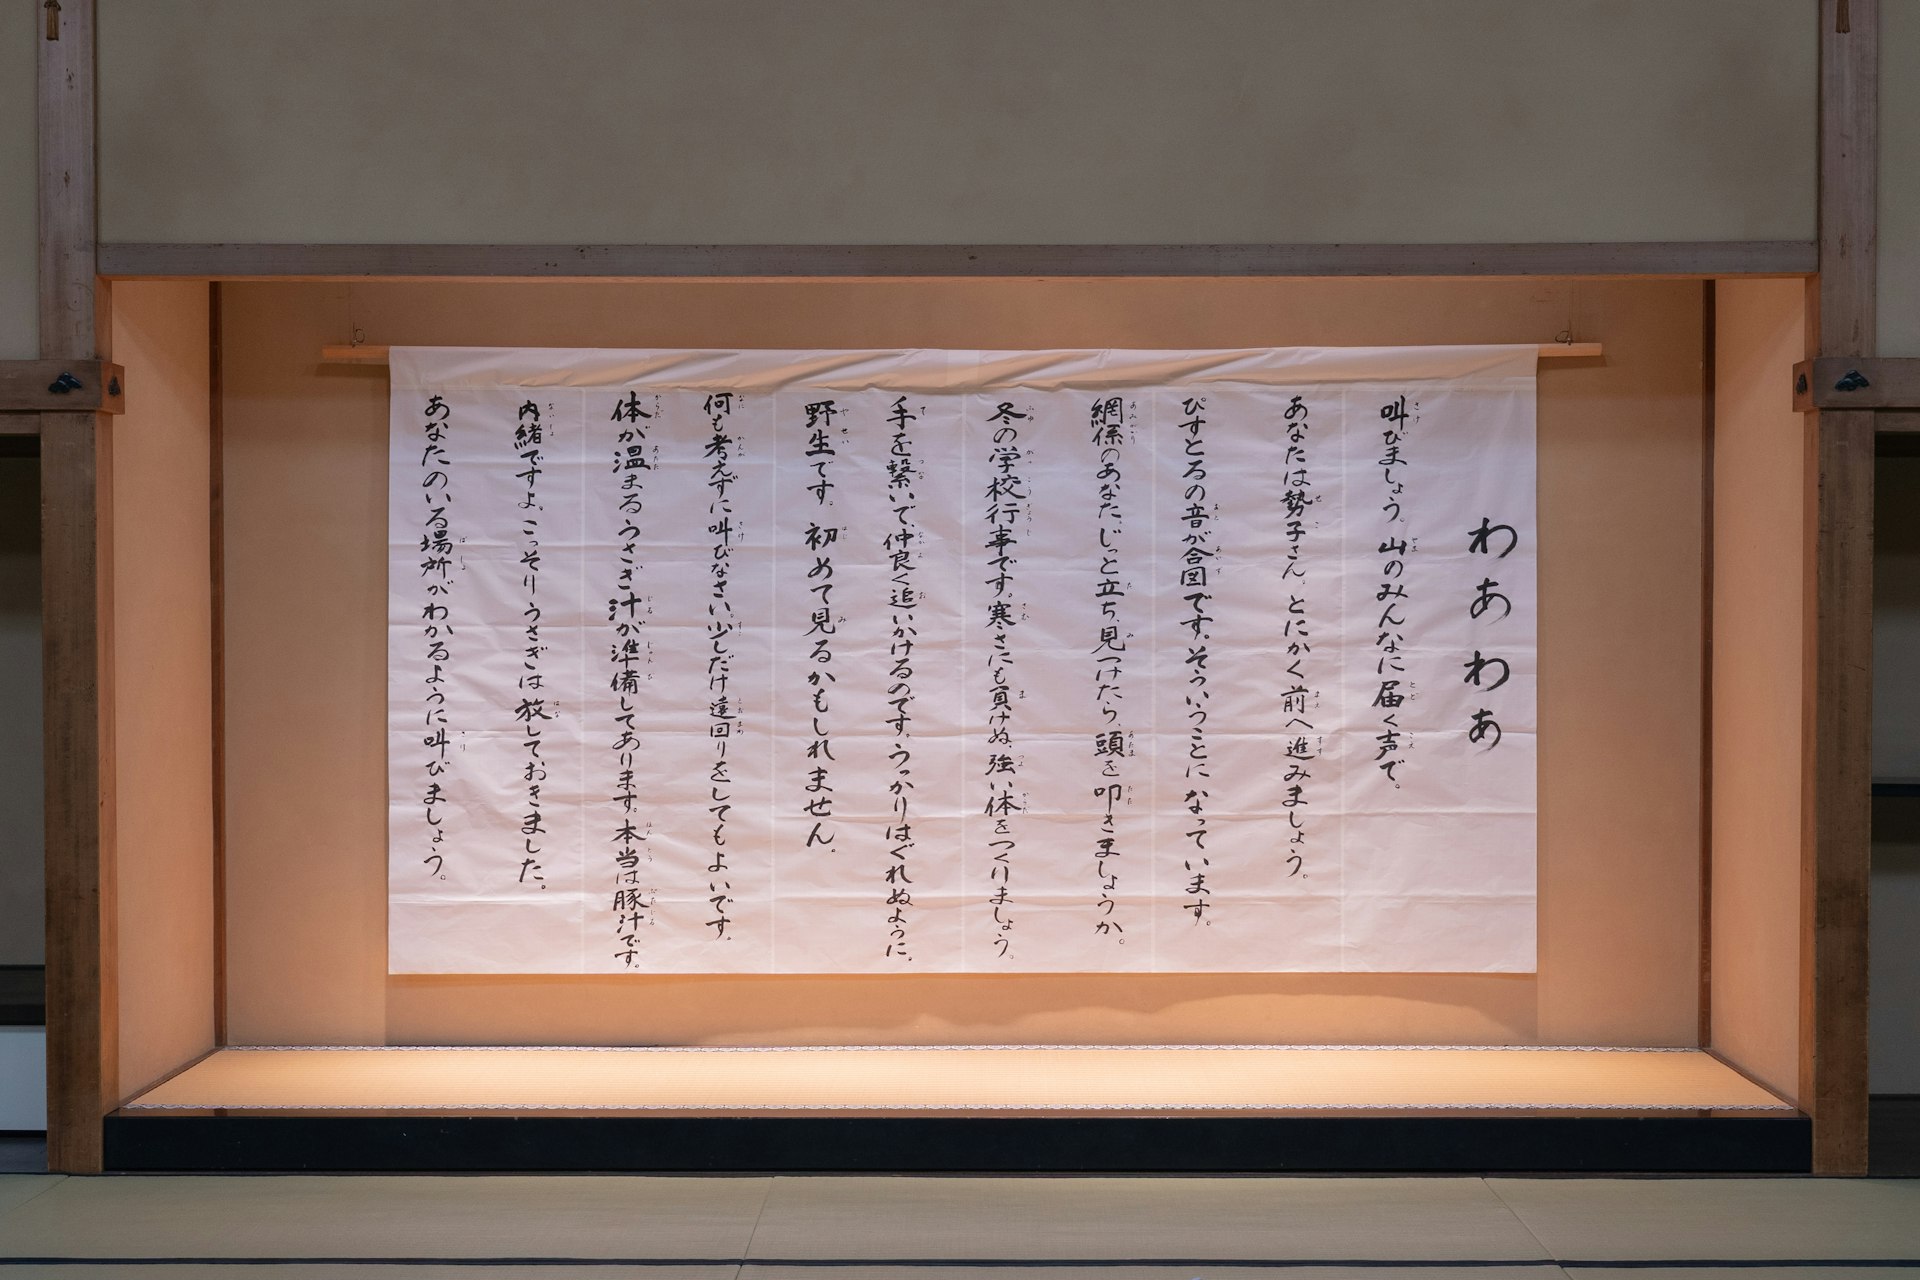 わあわあ
叫びましょう。山のみんなに届く声で。
あなたは勢子さん。とにかく前へ進みましょう。
ぴすとるの音が合図です。そういうことになっています。
網係のあなた、じっと立ち、見つけたら、頭を叩きましょうか。
冬の学校行事です。寒さにも負けぬ、強い体をつくりましょう。
手を繋いで、仲良く追いかけるのです。うっかりはぐれぬように。
野生です。初めて見るかもしれません。
何も考えずに叫びなさい。少しだけ遠回りをしてもよいです。
体が温まるうさぎ汁が準備してあります。本当は豚汁です。
内緒ですよ。こっそりうさぎは放しておきました。
あなたのいる場所がわかるように叫びましょう。